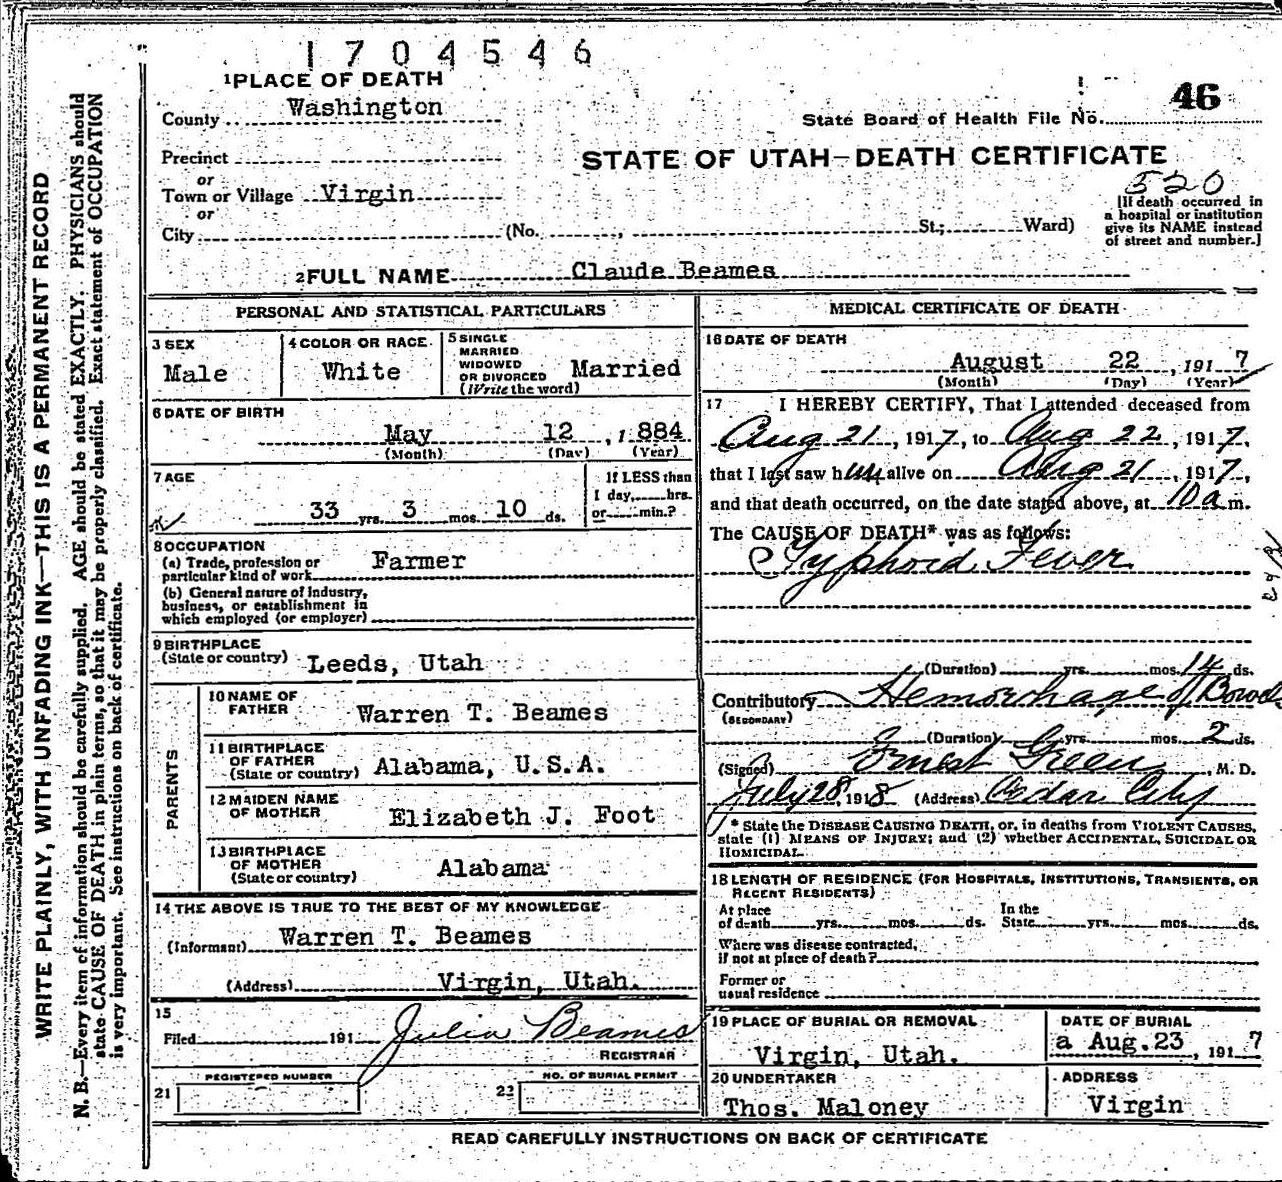 1704546
1 PLACE OF DEATH
County Washington
State Board of Health File No. 46
Precinct
or
STATE OF UTAH—DEATH CERTIFICATE
Town or Village Virgin
520
or
City (No. , St.; Ward)
[If death occurred in
a hospital or institution
give its NAME instead
of street and number.]
2 FULL NAME Claude Beames
PERSONAL AND STATISTICAL PARTICULARS
3 SEX
Male
4 COLOR OR RACE
White
5 SINGLE
MARRIED
WIDOWED
OR DIVORCED
(Write the word)
Married
6 DATE OF BIRTH
May 12, 1884
(Month) (Day) (Year)
7 AGE
33 yrs. 3 mos. 10 ds.
If LESS than
1 day, hrs.
or min.?
8 OCCUPATION
(a) Trade, profession or
particular kind of work Farmer
(b) General nature of Industry,
business, or establishment in
which employed (or employer)
9 BIRTHPLACE
(State or country) Leeds, Utah
PARENTS
10 NAME OF
FATHER Warren T. Beames
11 BIRTHPLACE
OF FATHER
(State or country) Alabama, U.S.A.
12 MAIDEN NAME
OF MOTHER Elizabeth J. Foot
13 BIRTHPLACE
OF MOTHER
(State or country) Alabama
14 THE ABOVE IS TRUE TO THE BEST OF MY KNOWLEDGE
(Informant) Warren T. Beames
(Address) Virgin, Utah.
15
Filed 191 Julia Beames
REGISTRAR
REGISTERED NUMBER
21
NO. OF BURIAL PERMIT
22
MEDICAL CERTIFICATE OF DEATH
16 DATE OF DEATH
August 22, 1917
(Month) (Day) (Year)
17 I HEREBY CERTIFY, That I attended deceased from
Aug 21, 1917, to Aug 22, 1917,
that I last saw him alive on Aug 21, 1917,
and that death occurred, on the date stated above, at 10 a m.
The CAUSE OF DEATH* was as follows:
Typhoid Fever
(Duration) yrs. mos. 14 ds.
Contributory Hemorrhage of Bowels
(SECONDARY)
(Duration) yrs. mos. 2 ds.
(Signed) Ernest Green, M. D.
July 28, 1918 (Address) Cedar City
* State the DISEASE CAUSING DEATH, or, in deaths from VIOLENT CAUSES,
state (1) MEANS OF INJURY; and (2) whether ACCIDENTAL, SUICIDAL OR
HOMICIDAL.
18 LENGTH OF RESIDENCE (FOR HOSPITALS, INSTITUTIONS, TRANSIENTS, OR
RECENT RESIDENTS)
At place
of death yrs. mos. ds.
In the
State yrs. mos. ds.
Where was disease contracted,
if not at place of death?
Former or
usual residence
19 PLACE OF BURIAL OR REMOVAL
Virgin, Utah.
DATE OF BURIAL
a Aug. 23, 1917
20 UNDERTAKER
Thos. Maloney
ADDRESS
Virgin
READ CAREFULLY INSTRUCTIONS ON BACK OF CERTIFICATE
WRITE PLAINLY, WITH UNFADING INK—THIS IS A PERMANENT RECORD
N. B.—Every item of information should be carefully supplied. AGE should be stated EXACTLY. PHYSICIANS should
state CAUSE OF DEATH in plain terms, so that it may be properly classified. Exact statement of OCCUPATION
is very important. See instructions on back of certificate.